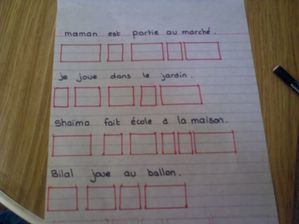 maman est partie au marché.
je joue dans le jardin.
Shaïma fait école à la maison.
Bilal joue au ballon.